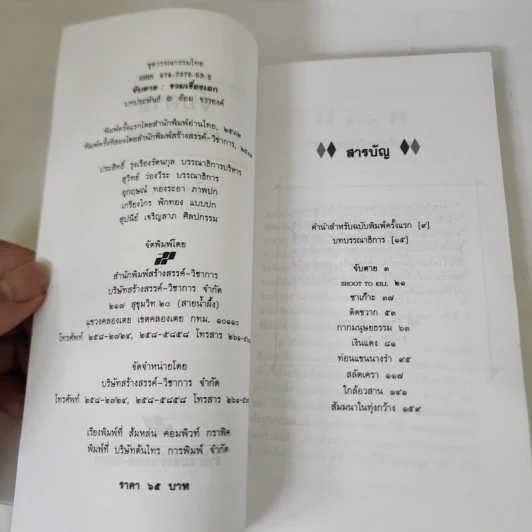 ชุดวรรณกรรมไทย
ISBN 974-7375-53-5
จับตาย : รวมเรื่องเอก
บทประพันธ์ © มนัส จรรยงค์
พิมพ์ครั้งแรกโดยสำนักพิมพ์อ่านไทย, ๒๕๓๒
พิมพ์ครั้งที่สองโดยสำนักพิมพ์สร้างสรรค์-วิชาการ,
ประสิทธิ์ รุ่งเรืองรัตนกุล บรรณาธิการบริหาร
สุวิทย์ ว่องวีระ บรรณาธิการ
อุกฤษณ์ ทองระอา ภาพปก
เกรียงไกร ฟักทอง แบบปก
สุปนีย์ เจริญลาภ ศิลปกรรม
จัดพิมพ์โดย
สำนักพิมพ์สร้างสรรค์-วิชาการ
บริษัทสร้างสรรค์-วิชาการ จำกัด
๒๑๗ สุขุมวิท ๒๐ (สายน้ำผึ้ง)
แขวงคลองเตย เขตคลองเตย กทม. ๑๐๑๑๐
โทรศัพท์ ๒๕๘-๒๗๒๔, ๒๕๘-๕๘๕๔ โทรสาร
จัดจำหน่ายโดย
บริษัทสร้างสรรค์-วิชาการ จำกัด
โทรศัพท์ ๒๕๘-๒๗๒๔, ๒๕๘-๕๘๕๔ โทรสาร
เรียงพิมพ์ที่ ส้มหล่น คอมพิวท์ กราฟิค
พิมพ์ที่ บริษัทต้นไทร การพิมพ์ จำกัด
ราคา ๖๕ บาท
สารบัญ
คำนำสำหรับฉบับพิมพ์ครั้งแรก [๙]
บทบรรณาธิการ [๑๕]
จับตาย ๓
SHOOT TO KILL ๒๑
ซาเก๊าะ ๓๗
ติดขวาก ๕๓
กากมนุษยธรรม ๖๓
เงินแดง ๘๑
ท่อนแขนนางรำ ๙๕
สลัดเครา ๑๑๗
ใกล้อวสาน ๑๔๑
สัมมนาในทุ่งกว้าง ๑๕๙